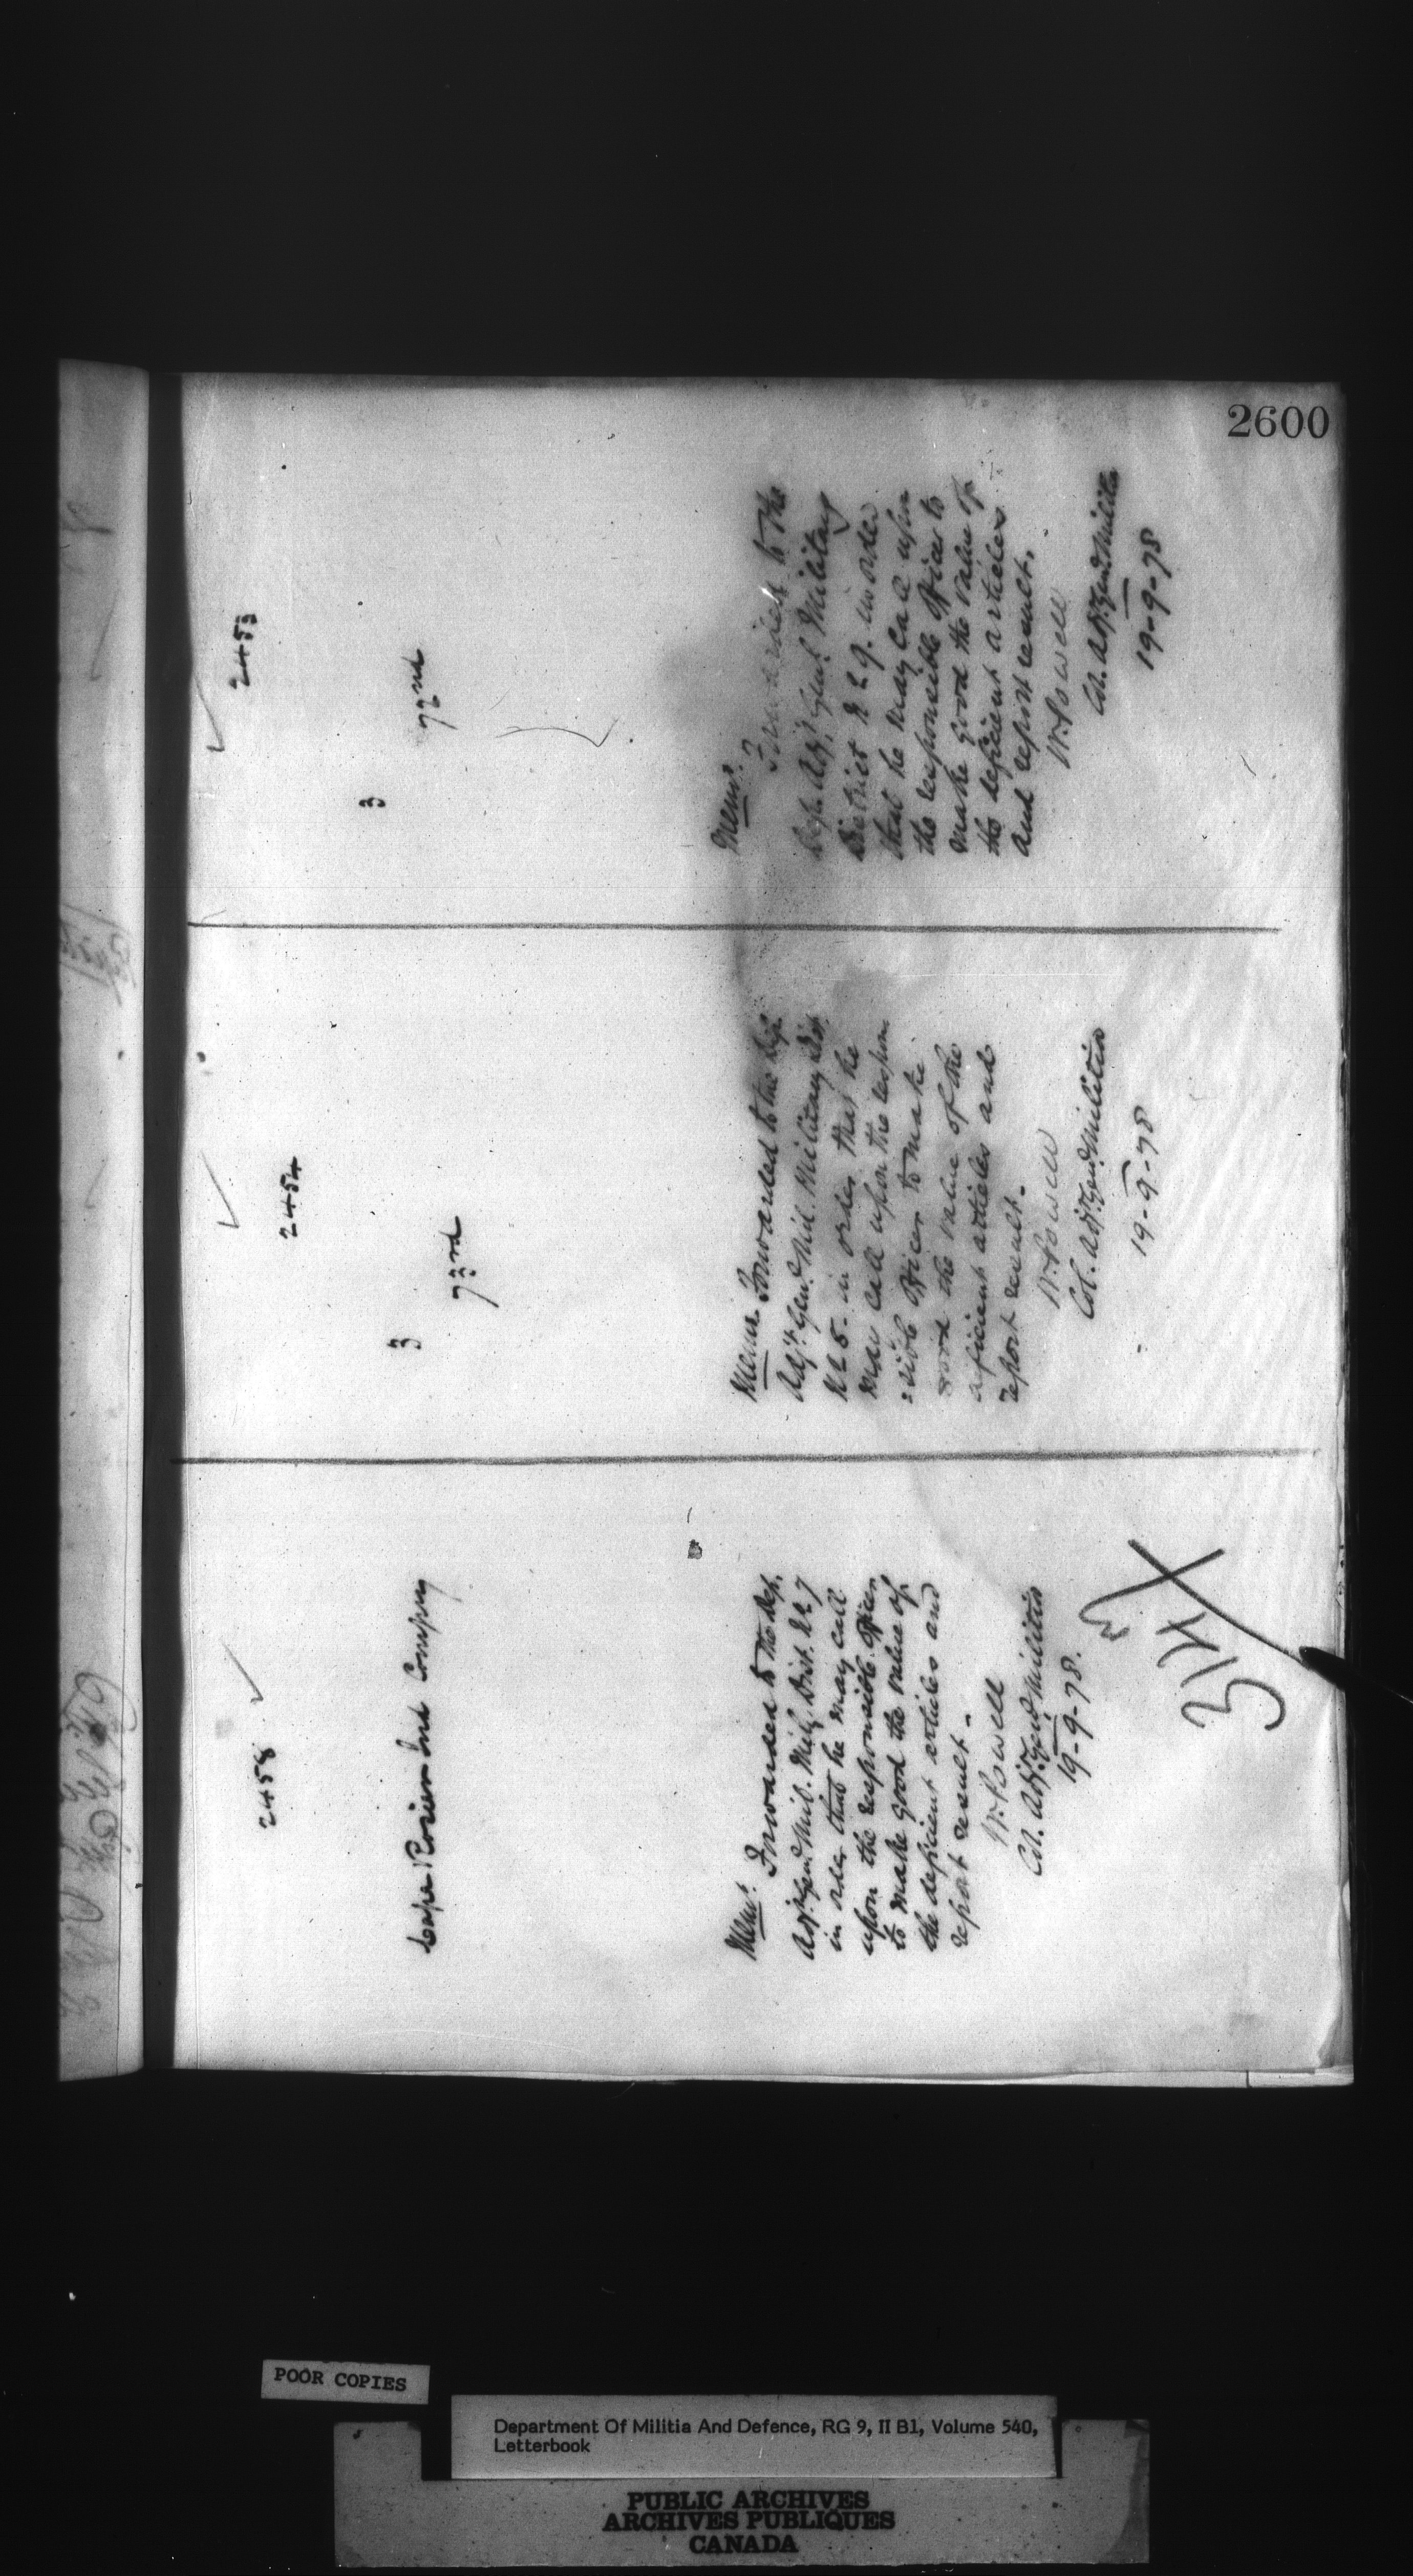 2600
2453
3
72nd
Memo.
Forwarded to the
Dep. Adj. Genl. Military
District No 9. in order
that he may call upon
the responsible officer to
make good the value of
the deficient articles
and report result.
W. Powell
Col. Adjt. Genl. Militia
19-9-78
2454
3
73rd
Memo Forwarded to the Dep.
Adjt. Genl. Mil. Military Dist
No 5. in order that he
may call upon the respon
sible officer to make
good the value of the
deficient articles and
report result.
W. Powell
Col. Adjt. Genl. Militia
19-9-78
2458
Cape Rosier Ind Company
Memo. Forwarded to the Dep.
Adjt. Genl. Mil. Mily. Dist. No 7
in order that he may call
upon the responsible officer
to make good the value of
the deficient articles and
report result.
W. Powell
Col. Adjt. Genl. Militia
19-9-78.
POOR COPIES
Department Of Militia And Defence, RG 9, II B1, Volume 540,
Letterbook
PUBLIC ARCHIVES
ARCHIVES PUBLIQUES
CANADA